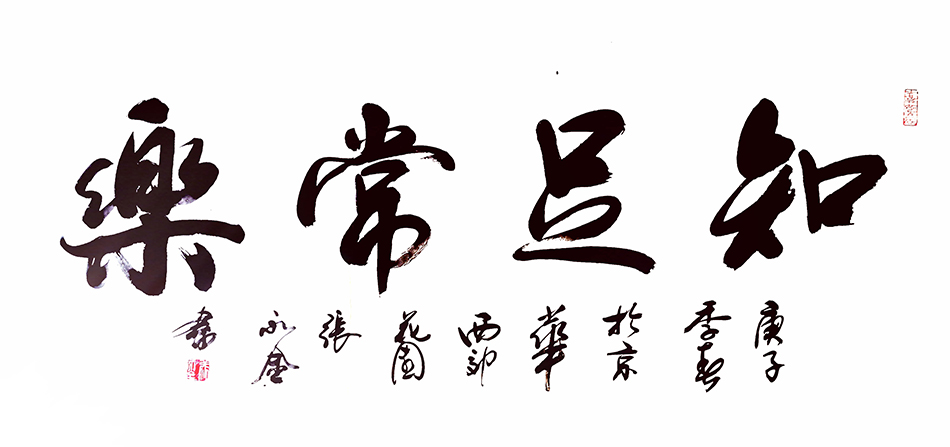 知足常樂
庚子季春於京華西郊花園張永金書